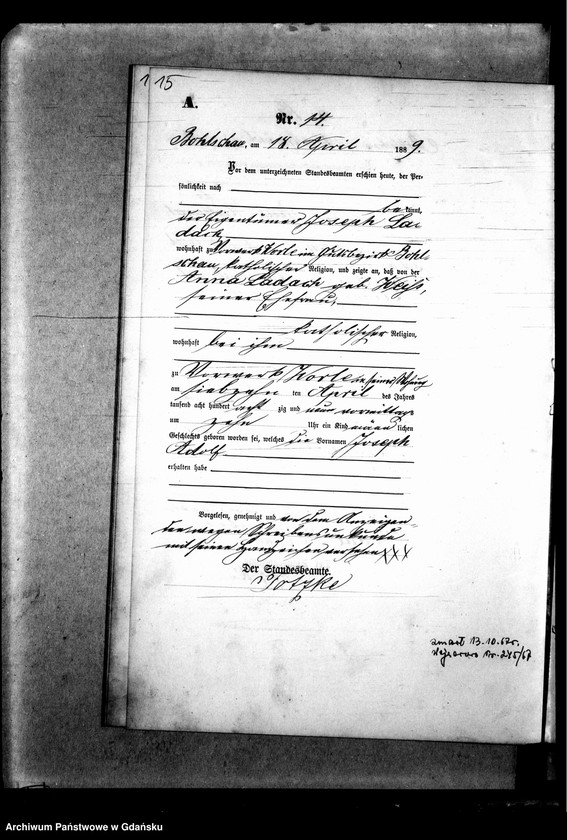 1 15
A.
Nr. 14.
Bohlschau, am 18. April 1889.
Vor dem unterzeichneten Standesbeamten erschien heute, der Per-
sönlichkeit nach
bekannt,
der Eigentümer Joseph La-
dach,
wohnhaft zu Vorwerk Worle im Gutsbezirk Bohl-
schau, katholischer Religion, und zeigte an, daß von der
Anna Ladach geb. Weiß,
seiner Ehefrau,
katholischer Religion,
wohnhaft bei ihm
zu Vorwerk Worle in seiner Wohnung
am siebzehn ten April des Jahres
tausend acht hundert acht zig und neun vormittags
um zehn Uhr ein Kind männ lichen
Geschlechts geboren worden sei, welches die Vornamen Joseph
Adolf
erhalten habe
Vorgelesen, genehmigt und von dem Anzeigen-
den wegen Schreibensunkunde
mit seinen Handzeichen versehen XXX
Der Standesbeamte.
zmarł 13.10.67r.
Wejherowo Nr. 275/67
Archiwum Państwowe w Gdańsku